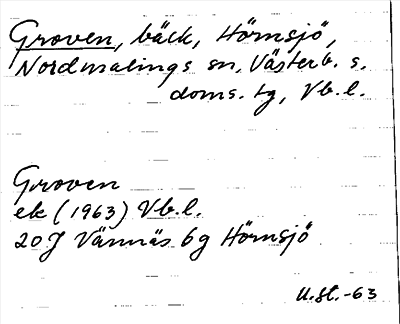 Groven, bäck, Hörnsjö,
Nordmalings sn, Västerb. s.
doms. tg, Vb.l.
Groven
ek (1963) Vb.l.
20J Vännäs 6g Hörnsjö
U.st.-63